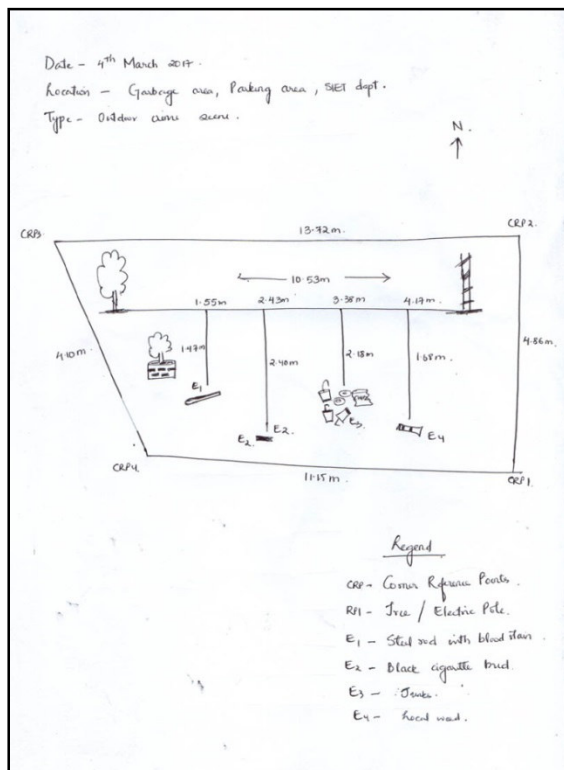 Date - 4th March 2017.
Location - Garbage area, Parking area, SIET dept.
Type - Outdoor crime scene.
N.
CRP3
13.72m.
CRP2.
10.53m
1.55m
2.43m
3.38m
4.17m
4.10m
1.47m
2.40m
2.18m
1.68m
4.86m
E1
E2
E2.
E3
E4
CRP4.
11.15m
CRP1.
Regend
CRP - Corner Reference Points.
RP1 - Tree / Electric Pole.
E1 - Steel rod with blood stain.
E2 - Black cigarette bud.
E3 -
E4 -